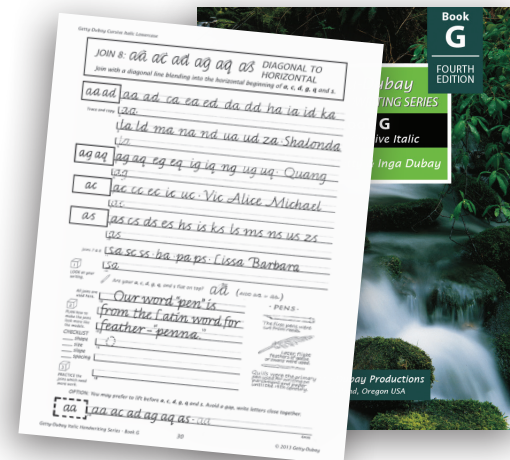 Getty-Dubay Cursive Italic Lowercase
JOIN 8: aa ac ad ag aq as DIAGONAL TO
HORIZONTAL
Join with a diagonal line blending into the horizontal beginning of a, c, d, g, q and s.
aa ad
aa ad ca ea ed da dd ha ia id ka
Trace and copy
aa
la ld ma na nd ua ud za · Shalonda
la
ag aq
ag aq eg eq ig iq ng ug uq · Quang
ag
ac
ac cc ec ic uc · Vic Alice Michael
ac
as
as cs ds es hs is ks ls ms ns us zs
as
sa sc ss · ba · pa ps · Lissa Barbara
sa
LOOK at your writing.
Are your a, c, d, g, q, and s flat on top?
Our word "pen" is
from the Latin word for
feather - "penna."
- PENS -
The first pens were
Later, flight
CHECKLIST:
shape
size
slope
spacing
OPTION: You may prefer to lift before a, c, d, g, q and s. Avoid a gap, write letters close together.
aa
aa ac ad ag aq as · aa
Getty-Dubay Italic Handwriting Series - Book G
30
© 2013 Getty-Dubay
Book
G
FOURTH
EDITION
ubay
TING SERIES
G
ive Italic
Inga Dubay
bay Productions
nd, Oregon USA